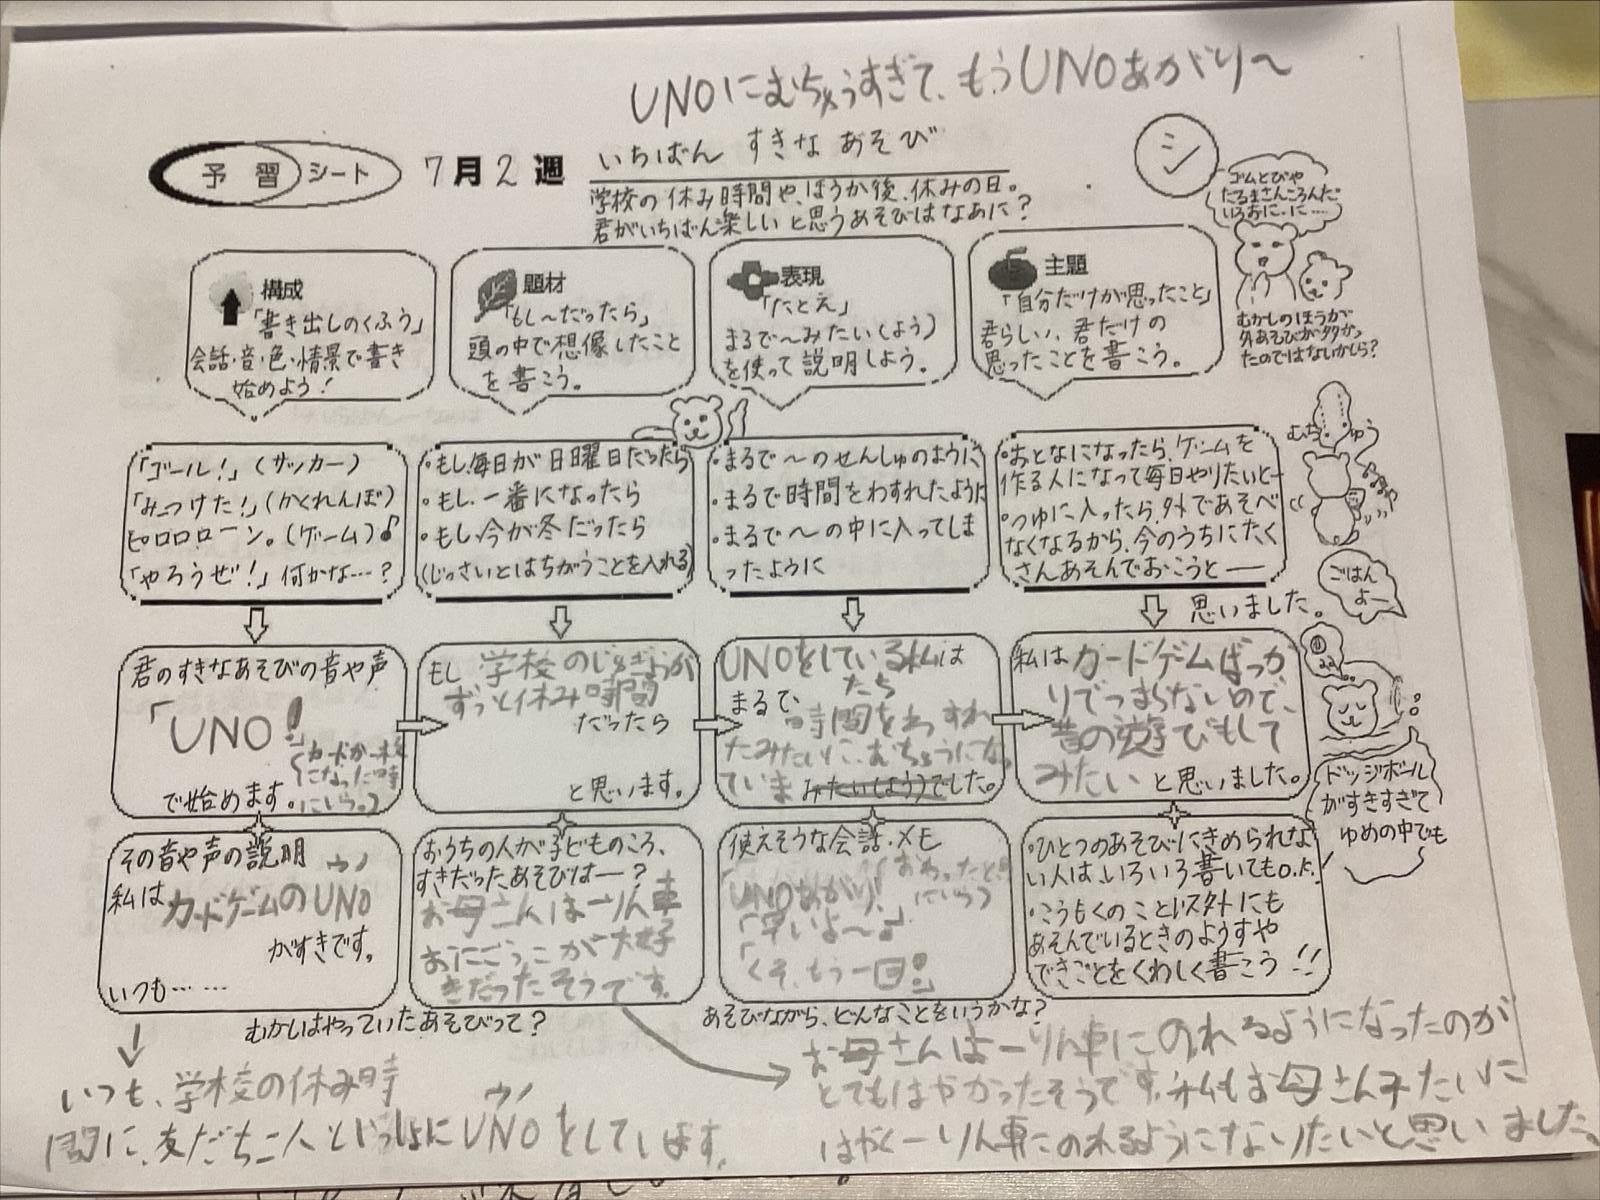 UNOにむちゅうすぎて、もうUNOあがり〜
予習シート
7月2週
いちばん すきな あそび
学校の休み時間や、ほうか後、休みの日。
君がいちばん楽しいと思うあそびはなあに？
シ
ゴムとびや
だるまさんころんだ
いろおに、に……
むかしのほうが
外あそびが多かっ
たのではないかしら？
構成
「書き出しのくふう」
会話・音・色・情景で書き
始めよう！
題材
「もし〜だったら」
頭の中で想像したこと
を書こう。
表現
「たとえ」
まるで〜みたい（よう）
を使って説明しよう。
主題
「自分だけが思ったこと」
君らしい、君だけの
思ったことを書こう。
「ゴール！」（サッカー）
「みつけた！」（かくれんぼ）
ピロロローン。（ゲーム）♪
「やろうぜ！」何かな…？
・もし、毎日が日曜日だったら
・もし、一番になったら
・もし、今が冬だったら
（じっさいとはちがうことを入れる）
・まるで〜のせんしゅのように
・まるで時間をわすれたように
・まるで〜の中に入ってしま
ったように
・おとなになったら、ゲームを
作る人になって毎日やりたいと—
・つゆに入ったら、外であそべ
なくなるから、今のうちにたく
さんあそんでおこうと——
思いました。
むちゅう
ごはん
よ—
君のすきなあそびの音や声
「UNO！」
（カードが一枚
になった時
にいう。）
で始めます。
もし 学校のじゅぎょうが
ずっと休み時間
だったら
と思います。
UNOをしている私は
たち
まるで、
時間をわすれ
たみたいに、むちゅうにな
ていま みたい（よう）でした。
私はカードゲームばっか
りでつまらないので、
昔の遊びもして
みたい と思いました。
ドッジボール
がすきすぎて
ゆめの中でも
その音や声の説明
ウノ
私は カードゲームのUNO
がすきです。
いつも……
おうちの人が子どものころ、
すきだったあそびは—？
お母さんは一りん車
おにごっこが大好
きだったそうです。
むかしはやっていたあそびって？
使えそうな会話・メモ
「UNOあがり！
（おわったとき
にいう）
「早いよ〜。」
「くそ、もう一回！」
あそびながら、どんなことをいうかな？
・ひとつのあそびにきめられな
い人は、いろいろ書いてもO.K.！
・こうもくのこと以外にも
あそんでいるときのようすや
できごとをくわしく書こう！！
いつも、学校の休み時
ウノ
間に、友だち二人といっしょにUNOをしています。
お母さんは一りん車にのれるようになったのが
とてもはやかったそうです。私もお母さんみたいに
はやく一りん車にのれるようになりたいと思いました。